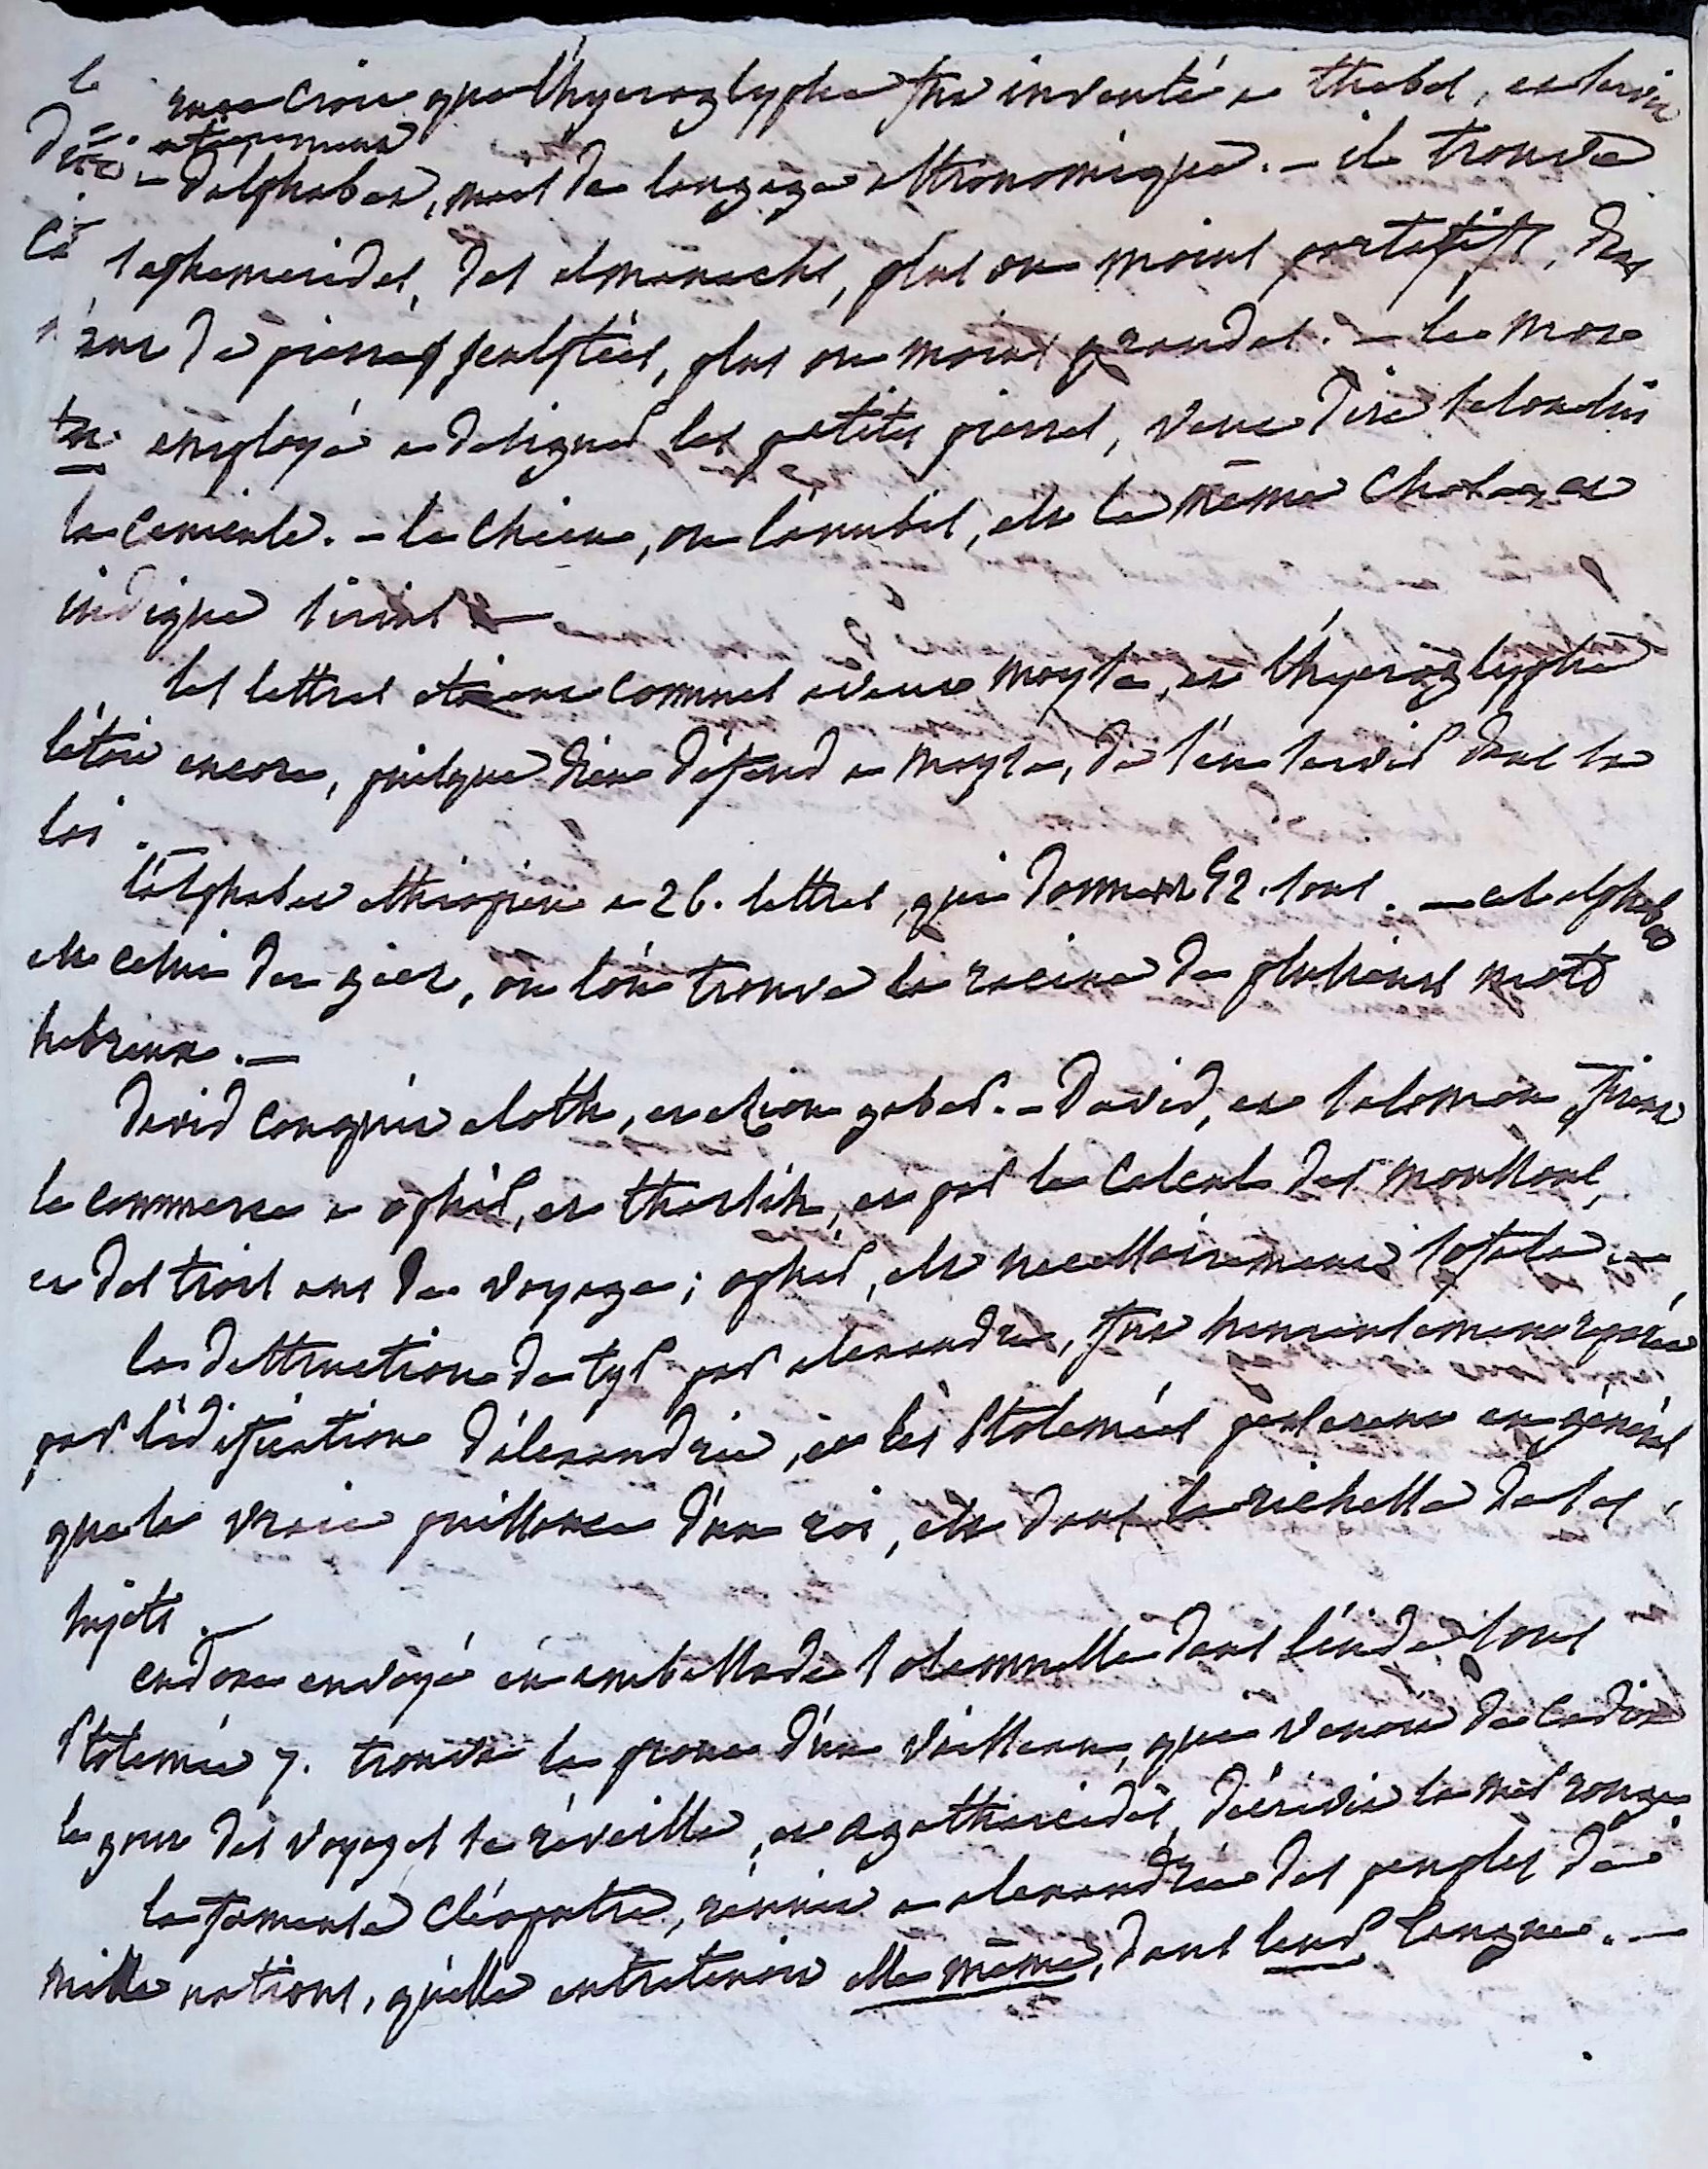 croit que l'hyeroglyphe fut inventé a thebes, et servit
d'alphabet, mais de langage astronomique. — il trouve
ephemerides, des almanachs, plus ou moins portatifs, dans
de pierres sculptées, plus ou moins grandes. — le mot
employé a designer les petites pierres, veut dire selon lui
la canicule. — le chien, ou l'anubis, est la même chose et
indique sirius —
les lettres etaient connues avant moyse, et l'hyeroglyphe
l'étoit encore, puisque dieu défend a moyse, de s'en servir dans la
loi. —
l'alphabet ethiopien a 26. lettres, qui donnent 92. sons. — cet alphabet
est celui du geez, ou l'on trouve la racine de plusieurs mots
hebreux. —
david conquit eloth, et ezion gaber. — David, et salomon firent
le commerce a ophir, et tharsish, et par le calcul des moussons,
et des trois ans de voyage; ophir, est necessairement sofala. —
la destruction de tyr par alexandre, fut heureusement reparée
par l'édification d'alexandrie, et les Ptolemées penserent en général
que la vraie puissance d'un roi, est dans la richesse de ses
sujets. —
eudoxe envoyé en ambassade solemnelle dans l'inde sous
Ptolemée 7. trouva la proue d'un vaisseau, qui venoit de cadix
le gout des voyages se réveilla, et agatharcides, décrivit la mer rouge.
la fameuse cléopatre, réunit a alexandrie des peuples de
mille nations, qu'elle entretenoit elle même, dans leur langue. —